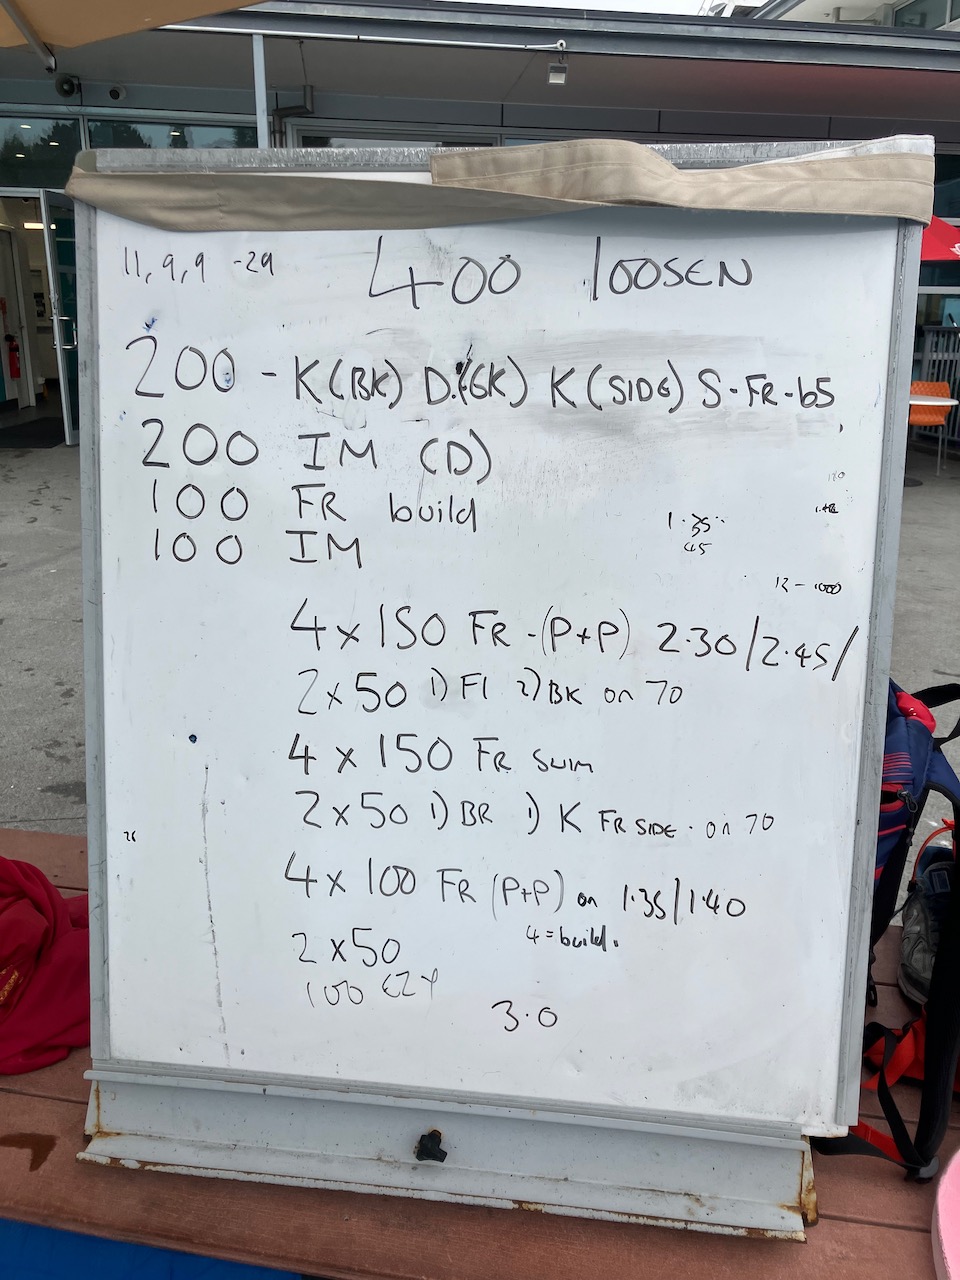 11, 9, 9 -29
400 loosen
200 - K(BK) D.(6K) K(SIDE) S-FR-b5
200 IM (D)
100 FR build
100 IM
1.35
45
12 - 1000
4 x 150 FR -(P+P) 2.30/2.45/
2x50 1) FI 2) BK on 70
4 x 150 FR SWIM
2x50 1) BR 1) K FR SIDE. on 70
26
4 x 100 FR (P+P) on 1.35/1.40
4=build.
2 x50
100 EZY
3.0